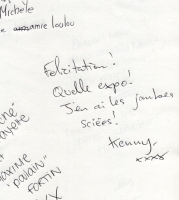 Michèle
amie loulou
Felicitation!
Quelle expo!
J'en ai les jambes
sciées!
Kenny
xxxx
MAXIME
"palain"
FORTIN